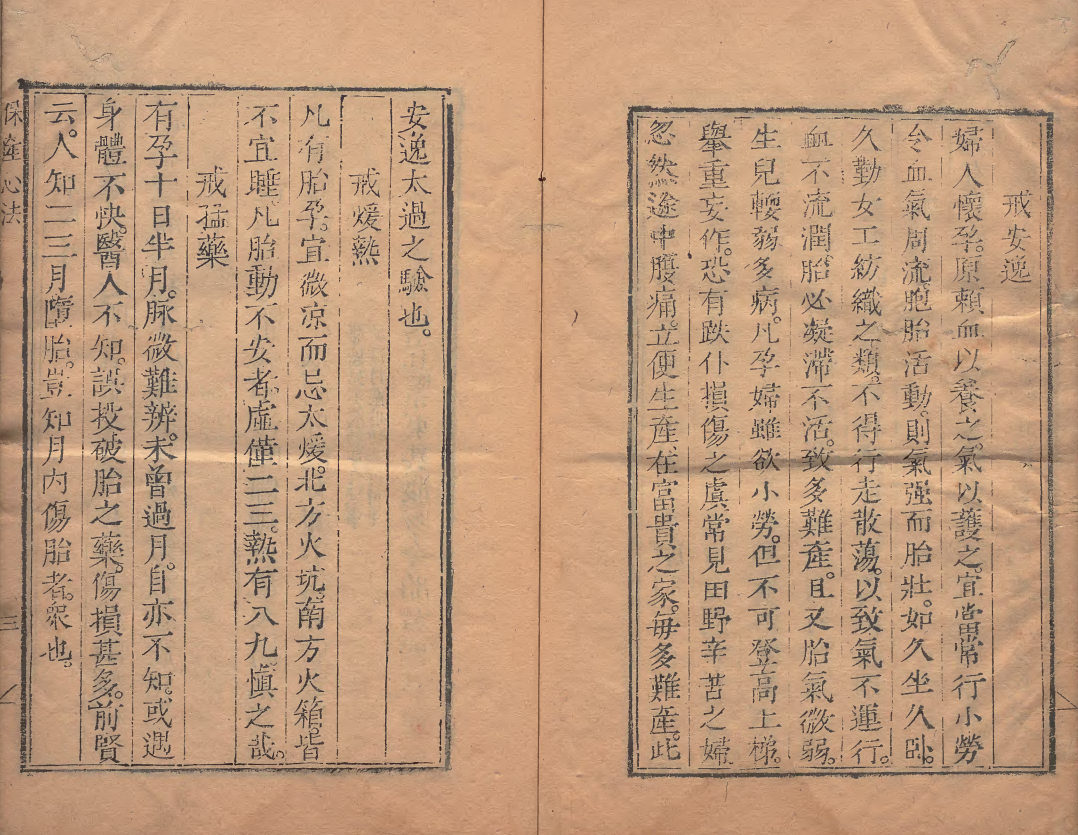 戒安逸
婦人懷孕。原賴血以養之。氣以護之。宜當常行小勞
令血氣周流。胞胎活動。則氣强而胎壯。如久坐久臥。
久勤女工紡織之類。不得行走散蕩。以致氣不運行。
血不流潤。胎必凝滯不活。致多難產。且又胎氣微弱。
生兒輭弱多病。凡孕婦雖欲小勞。但不可登高上梯。
舉重妄作。恐有跌仆損傷之虞常見田野辛苦之婦
忽然途中腹痛。立便生產。在富貴之家。每多難產。此
安逸太過之驗也。
戒煖熱
凡有胎孕。宜微凉而忌太煖。北方火坑。南方火箱。皆
不宜睡。凡胎動不安者。虛僅二三。熱有八九。慎之哉。
戒猛藥
有孕十日半月。脉微難辨。未曾過月。自亦不知。或遇
身體不快。醫人不知。誤投破胎之藥。傷損甚多。前賢
云。人知二三月墮胎。豈知月內傷胎者。衆也。
保產心法
三